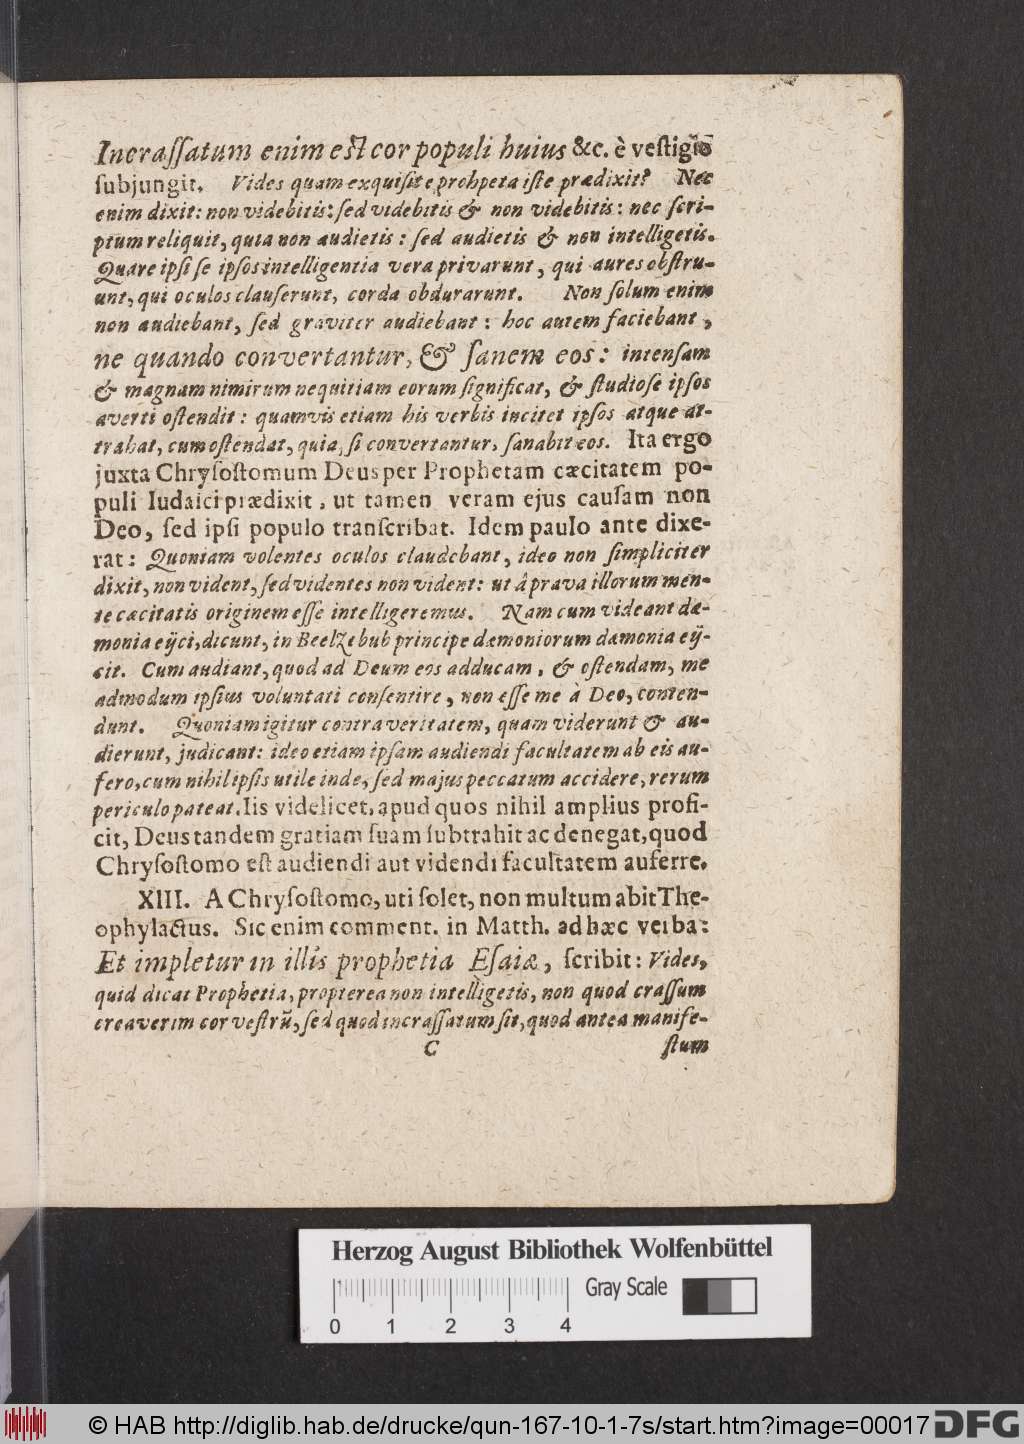 Incraſſatum enim eſt cor populi huius &c. è veſtigio
ſubjungit. Vides quam exquiſite prohpeta iſte prædixit? Nec
enim dixit: non videbitis: ſed videbitis & non videbitis: nec ſcri-
ptum reliquit, quia non audietis: ſed audietis & non intelligetis.
Quare ipſi ſe ipſos intelligentia vera privarunt, qui aures obſtru-
unt, qui oculos clauſerunt, corda obdurarunt. Non ſolum enim
non audiebant, ſed graviter audiebant: hoc autem faciebant,
ne quando convertantur, & ſanem eos: intenſam
& magnam nimirum nequitiam eorum ſignificat, & ſtudioſe ipſos
averti oſtendit: quamvis etiam his verbis incitet ipſos atque at-
trahat, cum oſtendat, quia, ſi convertantur, ſanabit eos. Ita ergo
juxta Chryſoſtomum Deus per Prophetam cæcitatem po-
puli Iudaici prædixit, ut tamen veram ejus cauſam non
Deo, ſed ipſi populo tranſcribat. Idem paulo ante dixe-
rat: Quoniam volentes oculos claudebant, ideo non ſimpliciter
dixit, non vident, ſed videntes non vident: ut â prava illorum men-
te cæcitatis originem eſſe intelligeremus. Nam cum videant dæ-
monia eijci, dicunt, in Beelzebub principe dæmoniorum dæmonia eij-
cit. Cum audiant, quod ad Deum eos adducam, & oſtendam, me
admodum ipſius voluntati conſentire, non eſſe me à Deo, conten-
dunt. Quoniam igitur contra veritatem, quam viderunt & au-
dierunt, judicant: ideo etiam ipſam audiendi facultatem ab eis au-
fero, cum nihil ipſis utile inde, ſed majus peccatum accidere, rerum
periculo pateat. Iis videlicet, apud quos nihil amplius profi-
cit, Deus tandem gratiam ſuam ſubtrahit ac denegat, quod
Chryſoſtomo eſt audiendi aut videndi facultatem auferre.
XIII. A Chryſoſtomo, uti ſolet, non multum abit The-
ophylactus. Sic enim comment. in Matth. ad hæc verba:
Et impletur in illis prophetia Eſaiæ, ſcribit: Vides,
quid dicat Prophetia, propterea non intelligetis, non quod craſſum
creaverim cor veſtrũ, ſed quod incraſſatum ſit, quod antea manife-
C ſtum
Herzog August Bibliothek Wolfenbüttel
Gray Scale
0 1 2 3 4
© HAB http://diglib.hab.de/drucke/qun-167-10-1-7s/start.htm?image=00017
DFG